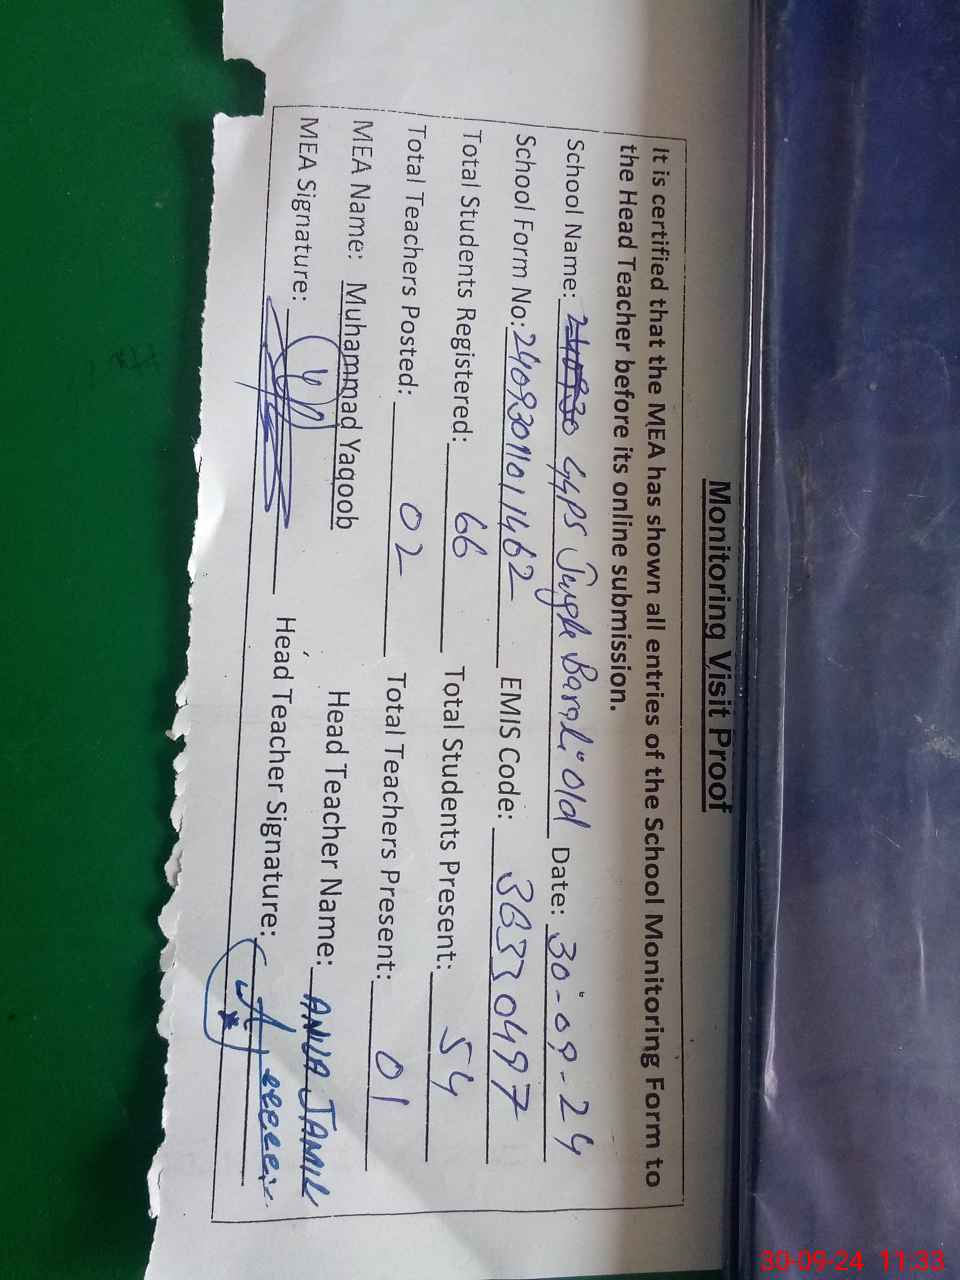 Monitoring Visit Proof
It is certified that the MEA has shown all entries of the School Monitoring Form to
the Head Teacher before its online submission.
School Name: 240930 GGPS Jungle Barali Old Date: 30-09-24
School Form No: 24093011011462 EMIS Code: 36330497
Total Students Registered: 66 Total Students Present: 54
Total Teachers Posted: 02 Total Teachers Present: 01
MEA Name: Muhammad Yaqoob Head Teacher Name: ANILA JAMIL
MEA Signature: Head Teacher Signature:
30-09-24 11:33